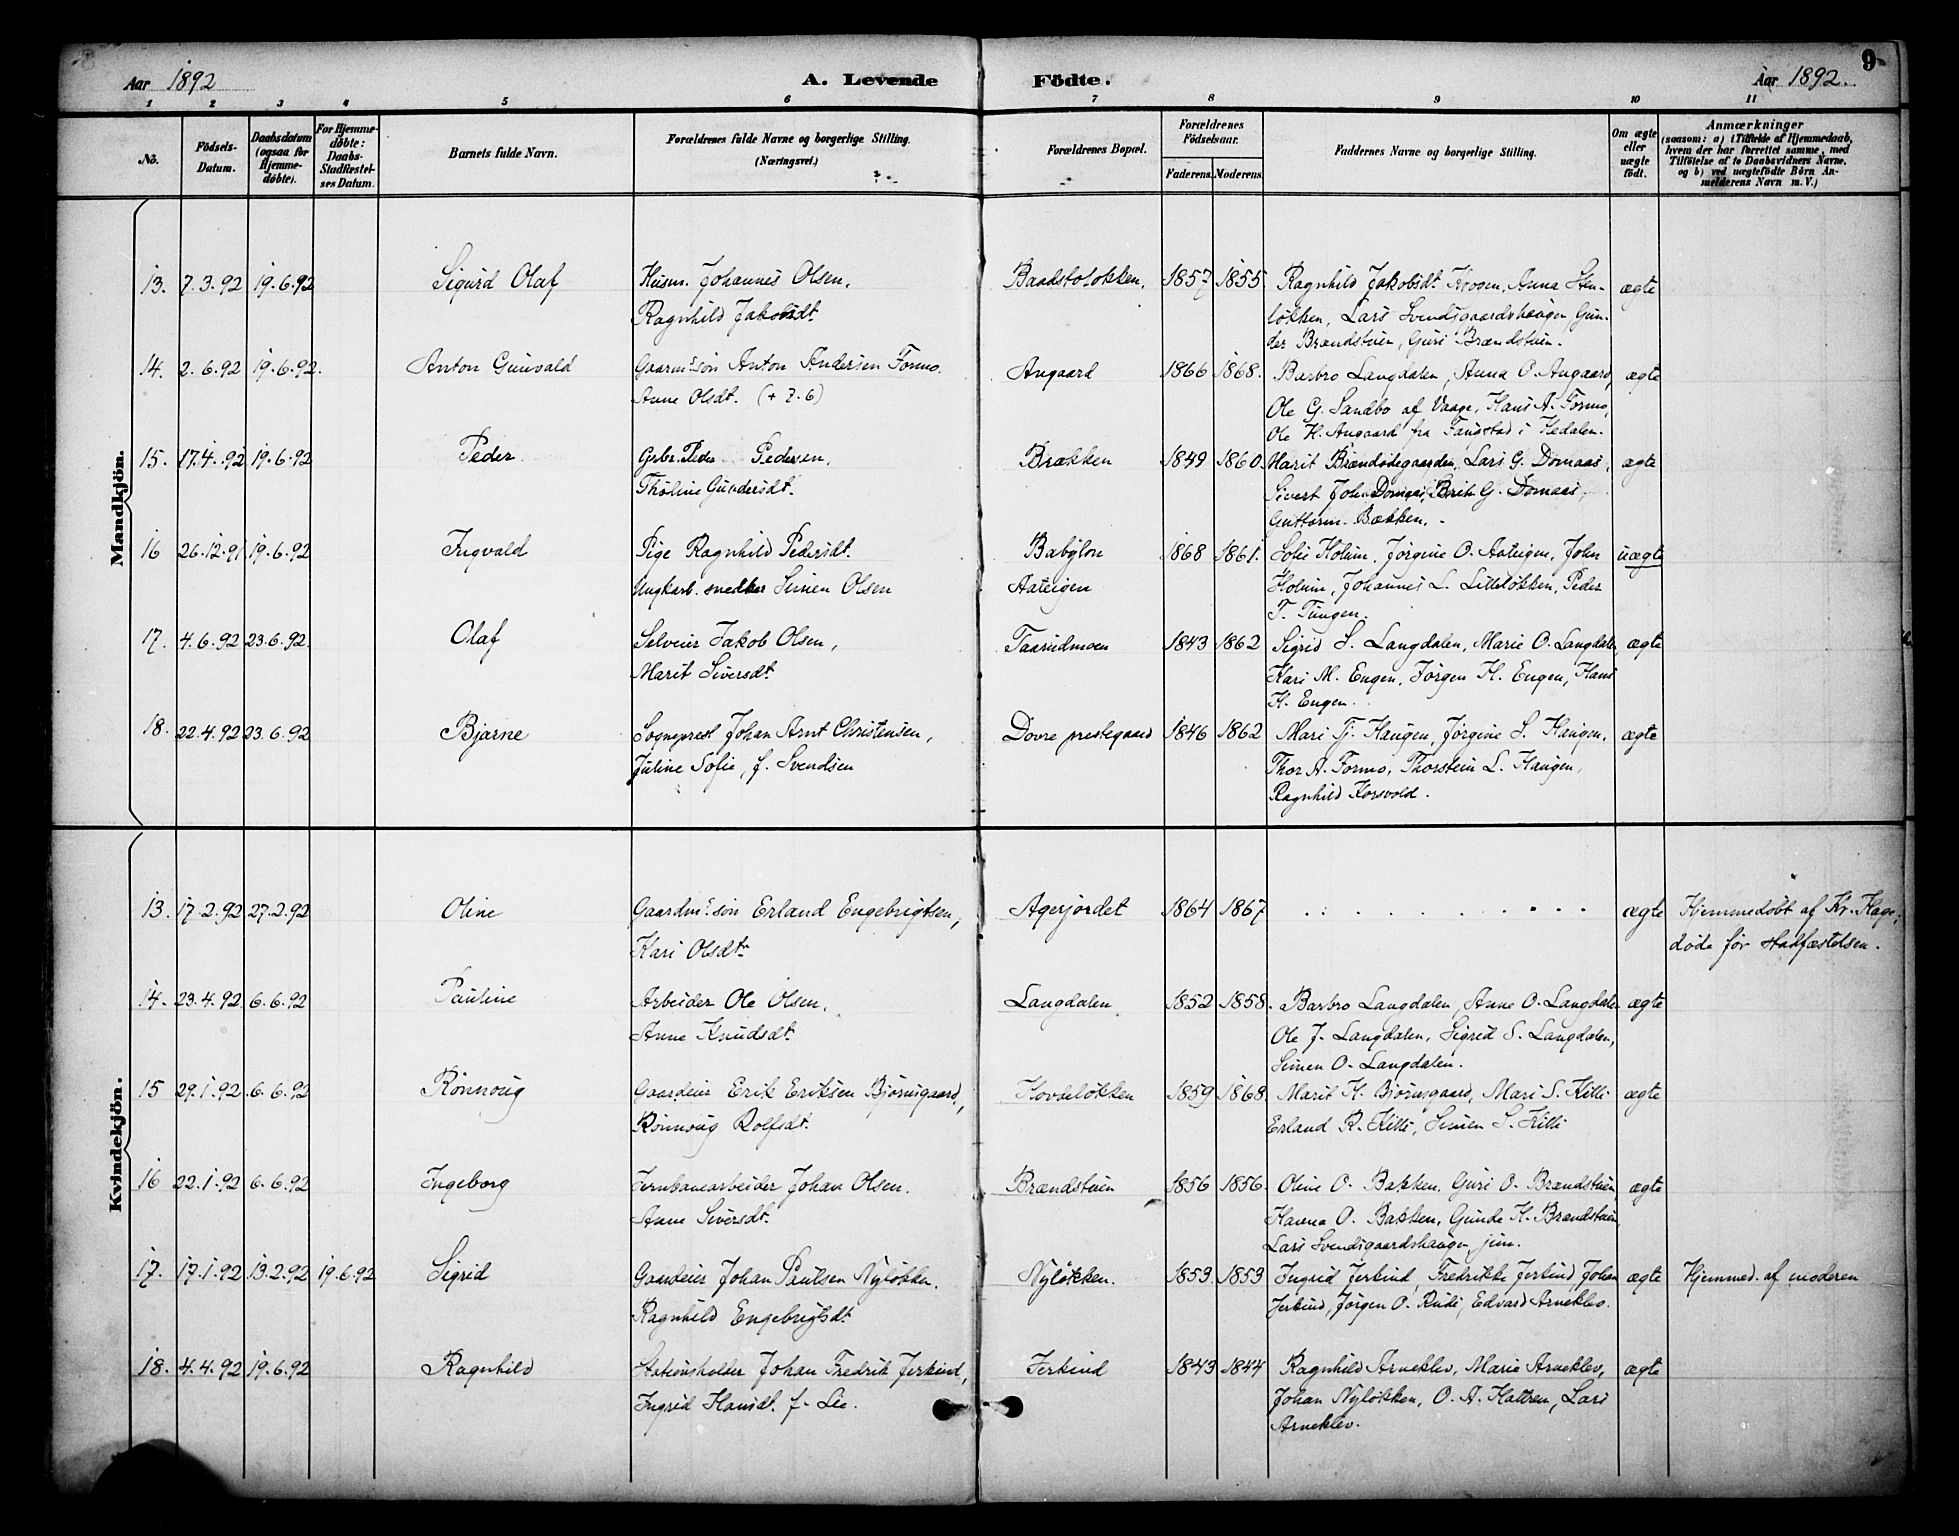 Aar 1892
A. Levende Födte.
Aar 1892.
9
1 2 3 4 5 6 7 8 9 10 11
No.
Födsels-Datum.
Daabsdatum (ogsaa for Hjemme-døbte).
For Hjemme-døbte: Daabs-Stadfæstel-ses Datum.
Barnets fulde Navn.
Forældrenes fulde Navne og borgerlige Stilling. (Næringsvei.)
Forældrenes Bopæl.
Forældrenes Fødselsaar.
Faderens. Moderens.
Faddernes Navne og borgerlige Stilling.
Om ægte eller uægte født.
Anmærkninger
(saasom: a) i Tilfælde af Hjemmedaab,
hvem der har forrettet samme, med
Tilföielse af to Daabsvidners Navne,
og b) ved uægtefödte Börn An-
melderens Navn m. V.)
Mandkjön.
13. 7.3.92 19.6.92 Sigurd Olaf Husm. Johannes Olsen, Baadstoløkken, 1857 1855 Ragnhild Jakobsdt. Krogen, Anna Sten- ægte
Ragnhild Jakobsdt. løkken, Lars Svendsgaardshaugen, Gun-
der Brændstuen, Guri Brændstuen.
14. 2.6.92 19.6.92. Anton Gunvald Gaardm.s søn Anton Andersen Formo. Angaard 1866 1868. Barbro Langdalen, Anna O. Angaard, ægte
Anne Olsdt. (+ 7.6) Ole G. Sandbo af Vaage, Hans A. Formo,
Ole H. Angaard fra Faugstad i Hedalen.
15. 17.4.92 19.6.92 Peder Grbr. Peder Pedersen, Brækken 1849 1860. Marit Brændødegaarden, Lars G. Domaas, ægte
Thøline Gundersdt. Sivert Johs Domaas, Brit G. Domaas,
Guttorm Bækken.
16 26.12.91 19.6.92 Ingvald Pige Ragnhild Pedersdt. Babylon 1868 1861. Sofie Holum, Jørgine O. Aateigen, John uægte
Ungkarl. snedker Simen Olsen Aateigen Holum, Johannes L. Lilleløkken, Peder
T. Tungen.
17. 4.6.92 23.6.92. Olaf Selveier Jakob Olsen, Taarudmoen 1843 1862 Sigrid S. Langdalen, Marie O. Langdalen, ægte
Marit Siversdt. Kari M. Engen, Jørgen H. Engen, Hans
H. Engen.
18. 22.4.92 23.6.92 Bjarne Sogneprest Johan Arnt Christensen, Dovre prestegaard 1846 1862 Mari Tj. Haugen, Jørgine S. Haugen, ægte
Juline Sofie, f. Svendsen Thor A. Formo, Thorstein L. Haugen,
Ragnhild Korsvold.
Kvindekjön.
13. 17.2.92 27.2.92 Oline Gaardm.s søn Erland Engebrigtsen, Agerjordet 1864 1867 ægte Hjemmedøbt af Kr. Hage,
Kari Olsdt. døde før stadfæstelsen.
14. 23.4.92. 6.6.92 Pauline Arbeider Ole Olsen, Langdalen 1852 1858. Barbro Langdalen, Anne O. Langdalen ægte
Anne Knudsdt. Ole J. Langdalen, Sigrid S. Langdalen,
Simen O. Langdalen.
15 29.1.92 6.6.92 Rønnoug Gaardeier Erik Eriksen Bjørnsgaard, Hovdeløkken 1859 1868. Marit H. Bjørnsgaard, Mari S. Killi ægte
Rønnoug Rolfsdt. Erland R. Killi, Simen S. Killi
16 22.1.92 6.6.92 Ingeborg Jernbanearbeider Johan Olsen. Brændstuen 1856 1856. Oline O. Bakken, Guri O. Brændstuen, ægte
Anne Siversdt. Hanna O. Bakken, Gunde H. Brændstuen,
Lars Svendsgaardshaugen, jun.
17. 17.1.92 13.2.92 19.6.92 Sigrid Gaardeier Johan Paulsen Nyløkken. Nyløkken. 1853 1853 Ingrid Jerkind, Fredrikke Jerkind, Johan ægte Hjemmed. af moderen
Ragnhild Engebrigtsdt. Jerkind, Jørgen O. Rudi, Edvard Arneklev.
18. 4.4.92 19.6.92 Ragnhild Stationsholder Johan Fredrik Jerkind, Jerkind 1843 1844 Ragnhild Arneklev, Marie Arneklev, ægte
Ingrid Hansdt. f. Lie. Johan Nyløkken, O. A. Hattren, Lars
Arneklev.